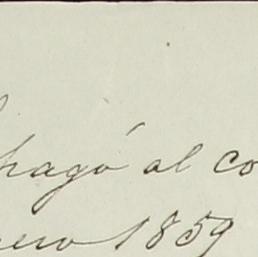 pagó al co
nero 1859